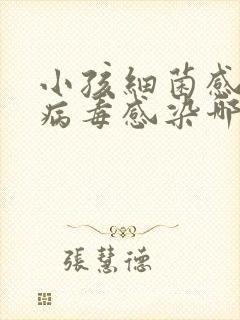 小孩细菌感
病毒感染哪
張慧德